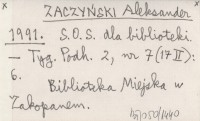 x ZACZYŃSKI Aleksander x
1991. S.O.S. dla biblioteki.
— Tyg. Podh. 2, nr 7 (17 II):
6.
Biblioteka Miejska w
Zakopanem.